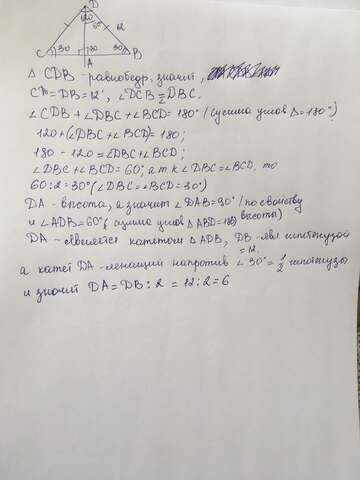 D
120
60
12
C 30 30 30 B
A
Δ CDB - равнобедр, значит,
CD = DB = 12, ∠DCB = DBC.
∠CDB + ∠DBC + ∠BCD = 180° (сумма углов Δ = 180°)
120 + (∠DBC + ∠BCD) = 180;
180 - 120 = ∠DBC + ∠BCD;
∠DBC + ∠BCD = 60°, а т к ∠DBC = ∠BCD, то
60 : 2 = 30° (∠DBC = ∠BCD = 30°)
DA - высота, а значит ∠DAB = 90° (по свойству высоты)
и ∠ADB = 60° (сумма углов Δ ABD = 180)
DA - является катетом Δ ADB, DB - явл гипотенузой
= 12.
а катет DA - лежащий напротив ∠ 30° = 1/2 гипотенузы
и значит DA = DB : 2 = 12 : 2 = 6